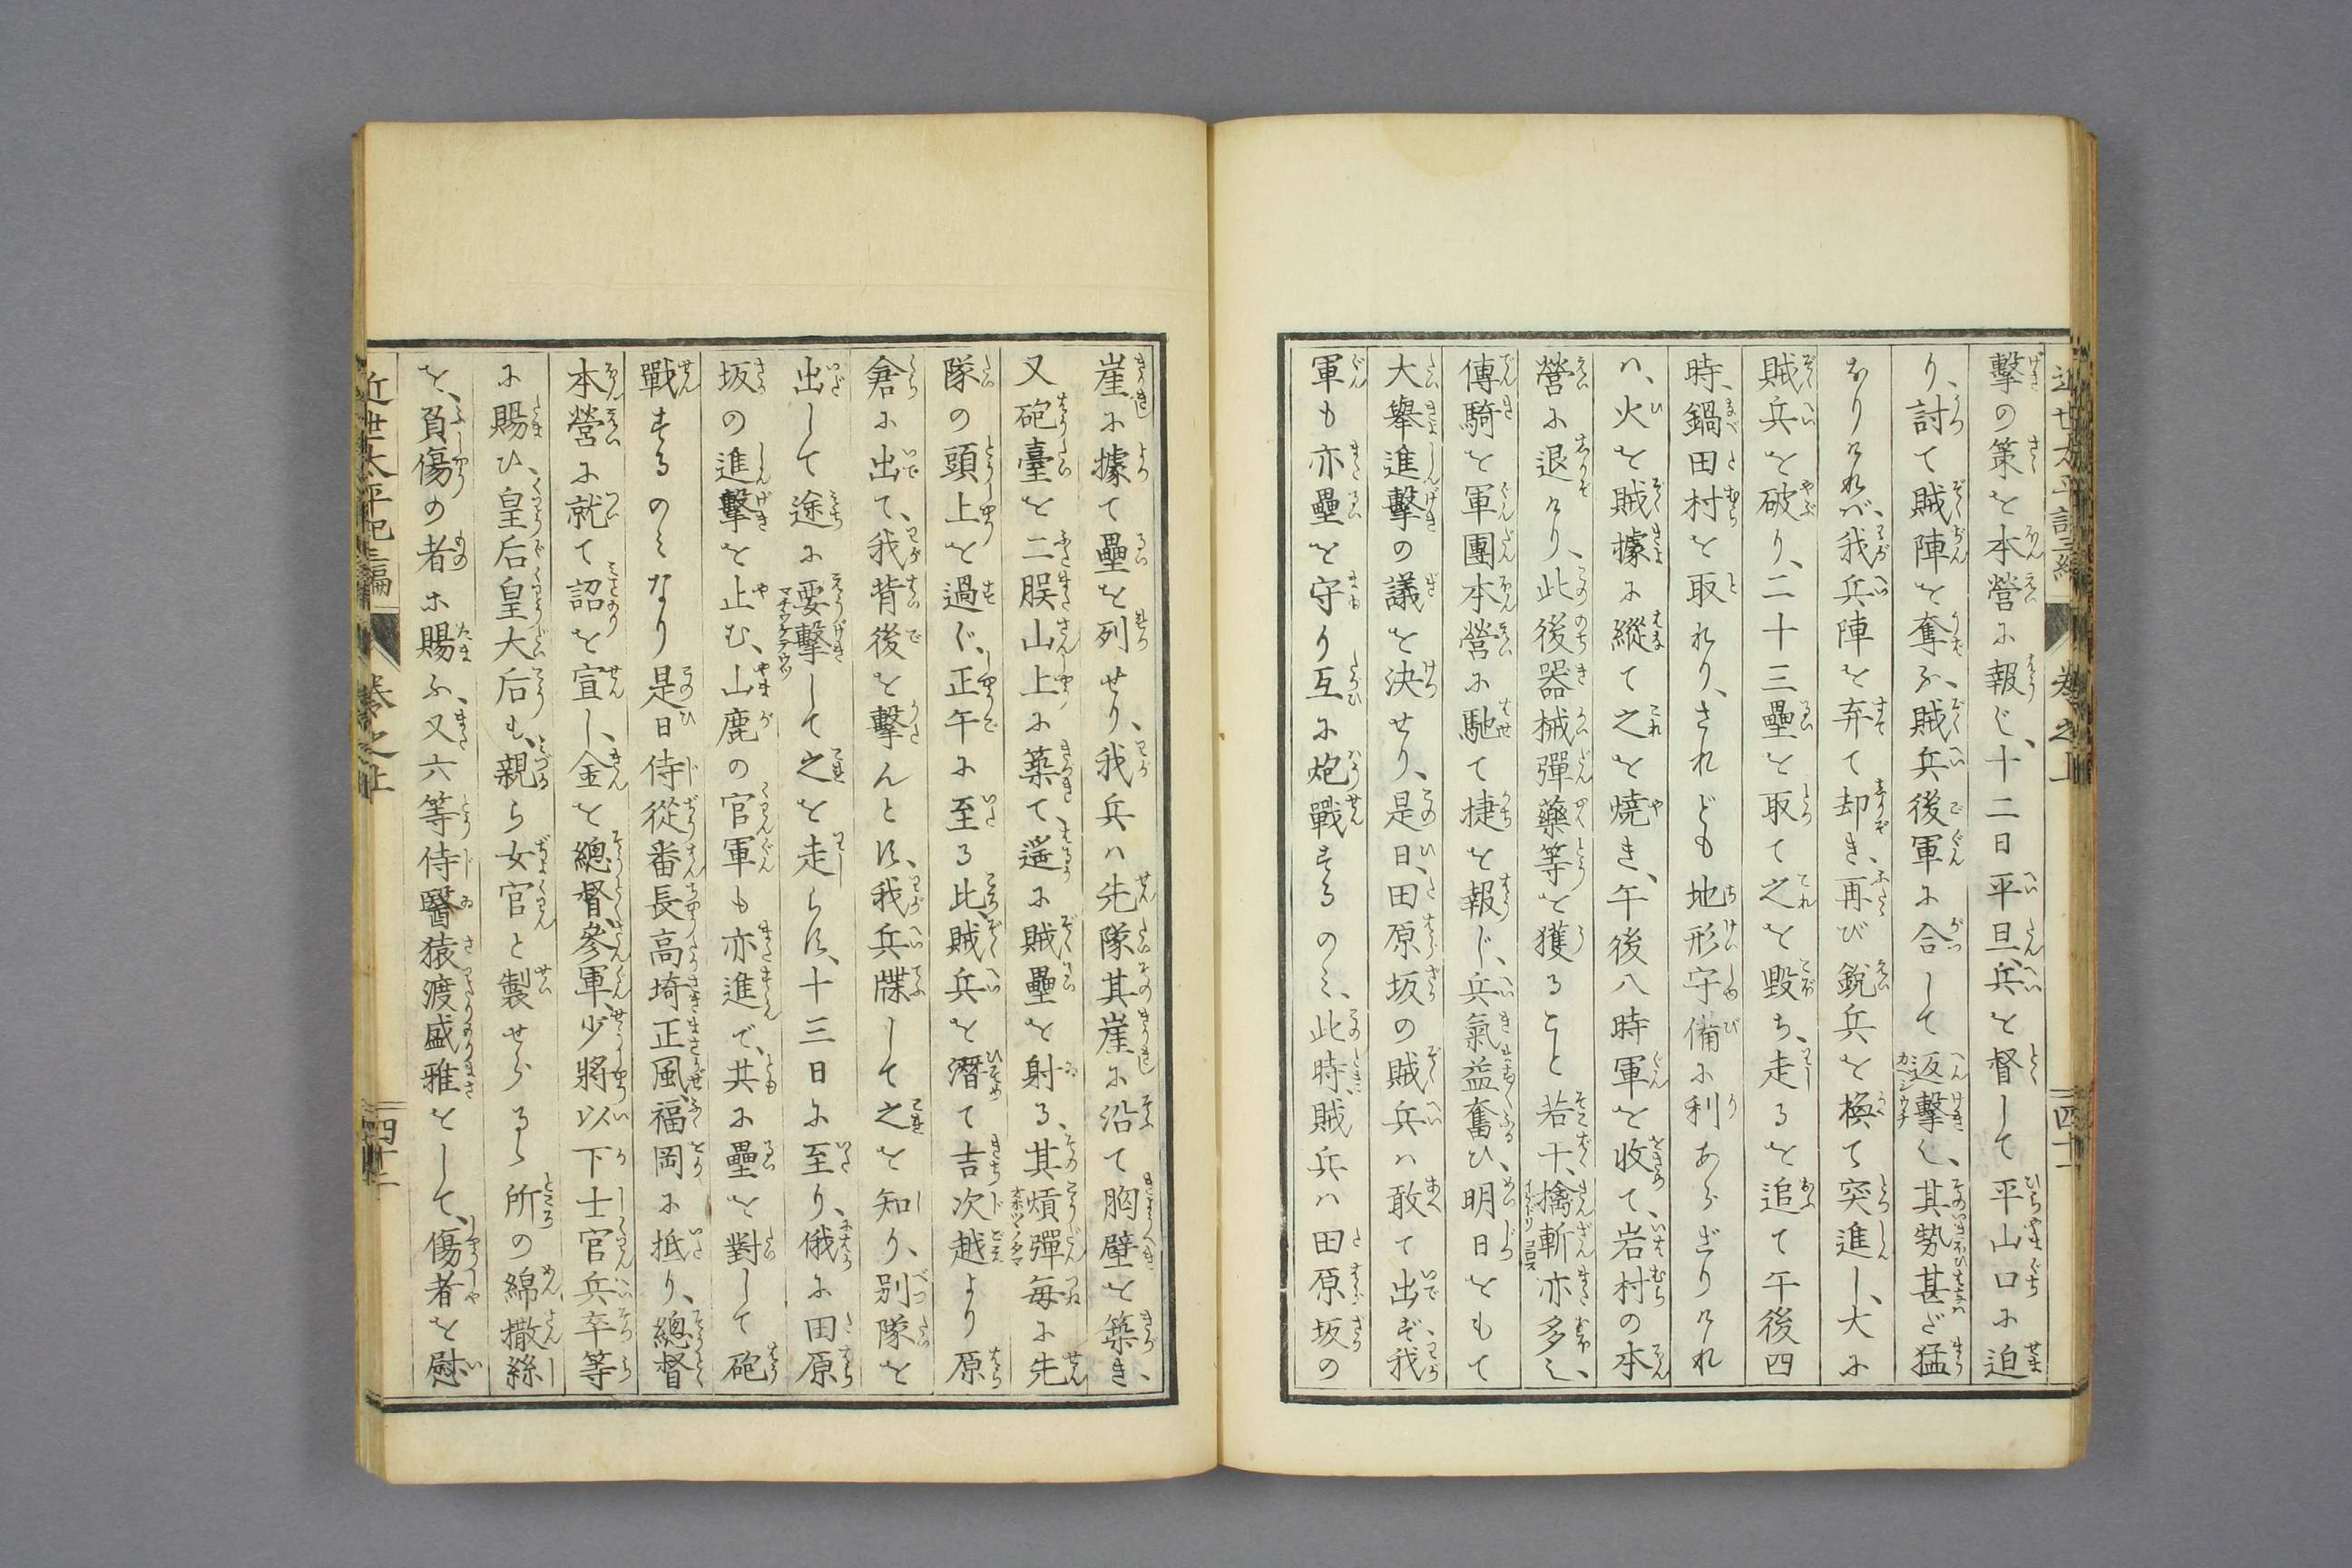 撃の策を本營に報じ、十二日平旦、兵を督して平山口に迫
り、討て賊陣を奪ふ、賊兵後軍に合して返撃し、其勢甚だ猛
なりけれバ、我兵陣を弃て却き、再び鋭兵を撿て突進し、大に
賊兵を破り、二十三壘を取て之を毀ち、走るを追て午後四
時、鍋田村を取れり、されども地形守備に利あらざりけれ
ハ、火を賊據に縱て之を燒き、午後八時軍を收て、岩村の本
營に退けり、此後器械彈藥等を獲ること若干、擒斬亦多し、
傳騎を軍團本營に馳て捷を報じ、兵氣益奮ひ、明日をもて
大擧進撃の議を決せり、是日、田原坂の賊兵ハ敢て出ず、我
軍も亦壘を守り互に炮戰するのミ、此時賊兵ハ田原坂の
崖に據て壘を列せり、我兵ハ先隊其崖に沿て胸壁を築き、
又砲臺を二股山上に築て、遥に賊壘を射る、其熕彈毎に先
隊の頭上を過ぐ、正午に至る比、賊兵を潛て吉次越より原
倉に出て、我背後を撃んとす、我兵牒して之を知り、別隊を
出して途に要撃して之を走らす、十三日に至り、俄に田原
坂の進撃を止む、山鹿の官軍も亦進で、共に壘を對して砲
戰するのミなり是日侍從番長高埼正風、福岡に抵り、總督
本營に就て詔を宣し、金を總督、參軍、少將以下士官兵卒等
に賜ひ、皇后皇大后も、親ら女官と製せらるゝ所の綿撒絲
を、負傷の者に賜ふ、又六等侍醫猿渡盛雅をして、傷者を慰
近世太平記三編 卷之上